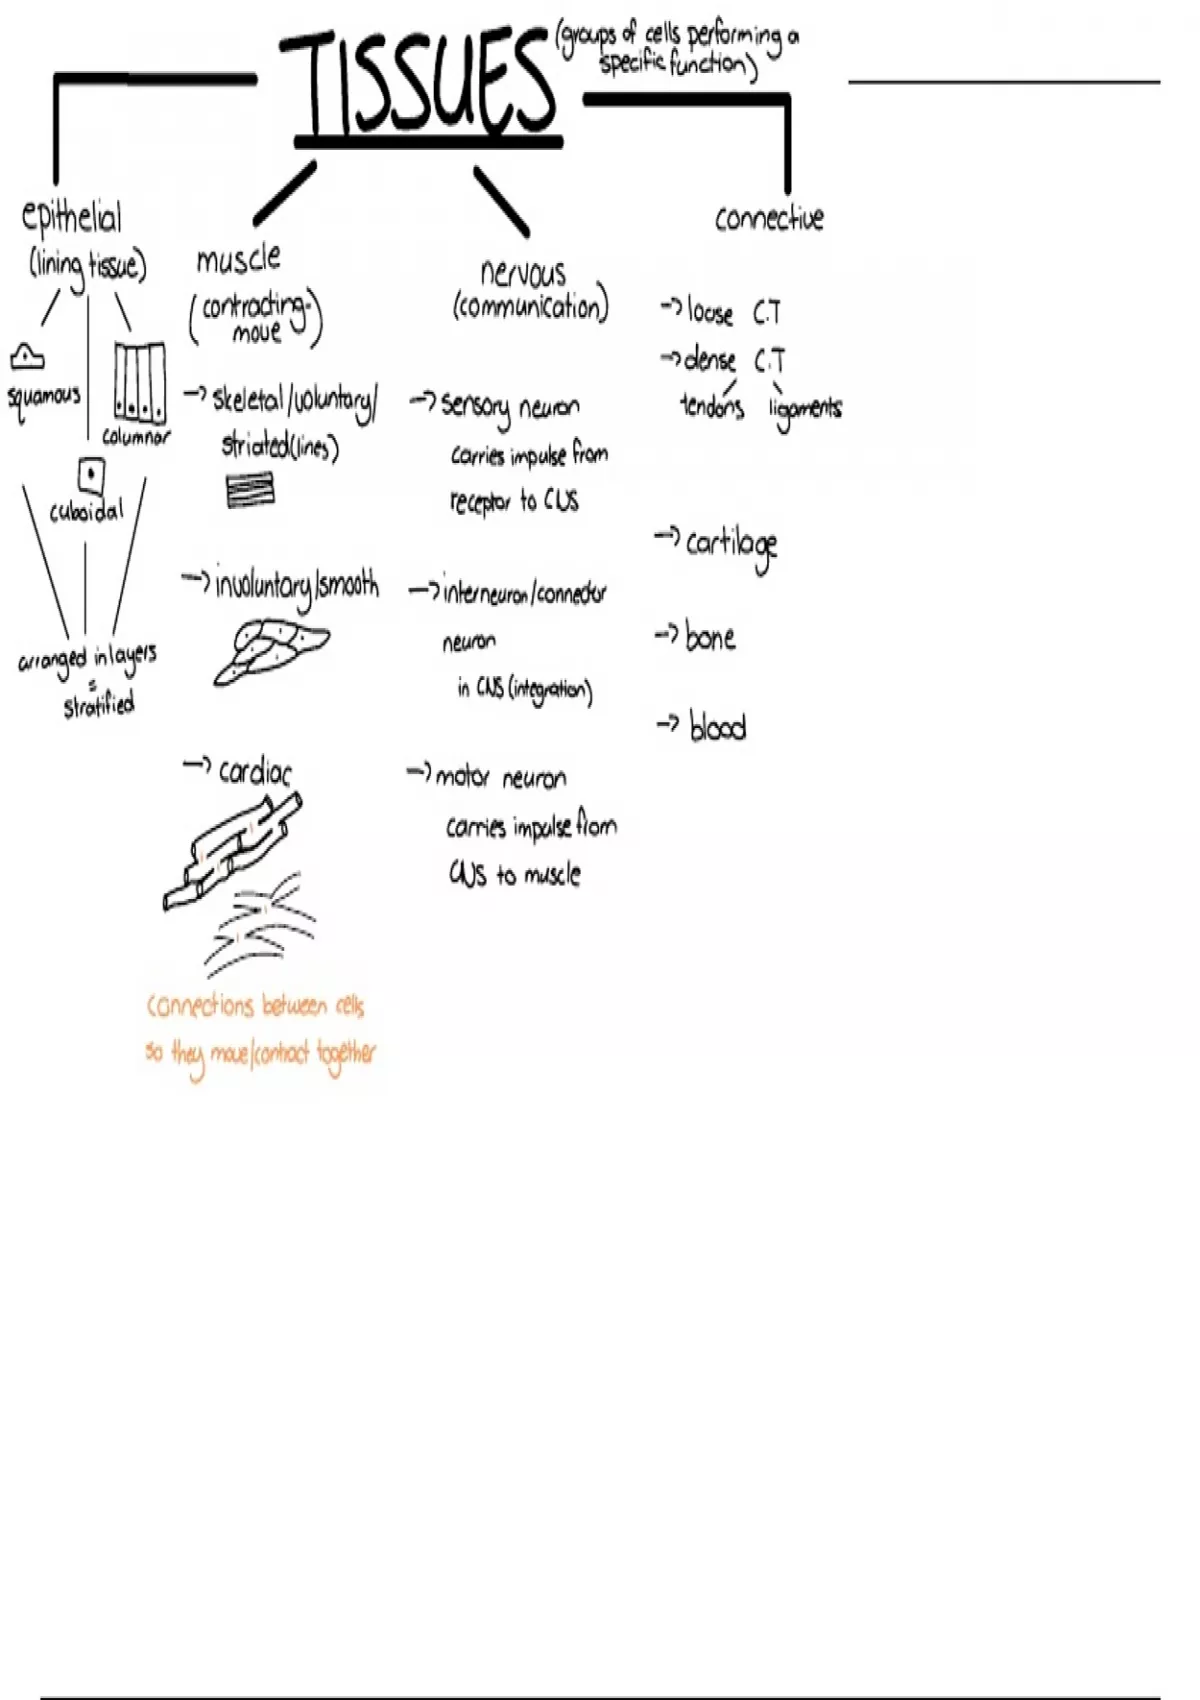 TISSUES
(groups of cells performing a
specific function)
epithelial
(lining tissue)
squamous
columnar
cuboidal
arranged in layers
=
stratified
muscle
(contracting-
move)
→ skeletal/voluntary/
striated(lines)
→ involuntary/smooth
→ cardiac
connections between cells
so they move/contract together
nervous
(communication)
→ sensory neuron
carries impulse from
receptor to CNS
→ interneuron/connector
neuron
in CNS (integration)
→ motor neuron
carries impulse from
CNS to muscle
connective
→ loose C.T
→ dense C.T
tendons ligaments
→ cartilage
→ bone
→ blood